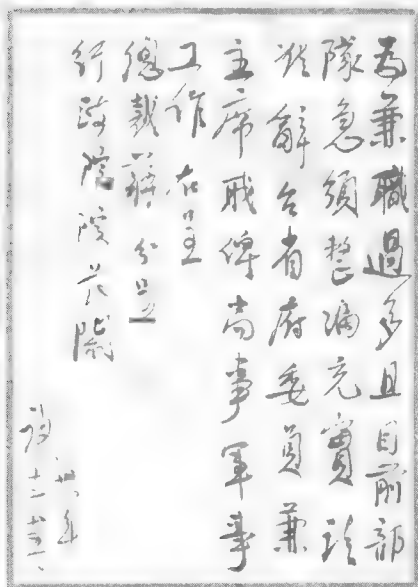 為兼職過多且目前部
隊急須整編充實擬
懇辭台省府委員兼
主席職俾尚事軍事
工作右呈
總裁蔣分呈
行政院院長閻
卅八年
十二